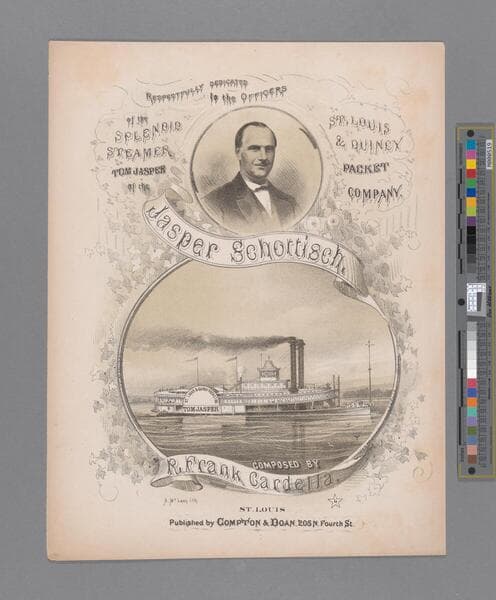 RESPECTFULLY DEDICATED
to the OFFICERS
of the
SPLENDID
STEAMER
TOM JASPER
of the
ST. LOUIS
& QUINCY
PACKET
COMPANY.
Jasper Schottisch.
TOM JASPER
COMPOSED BY
R. Frank Cardella.
ST. LOUIS
Published by COMPTON & DOAN, 205 N. Fourth St.